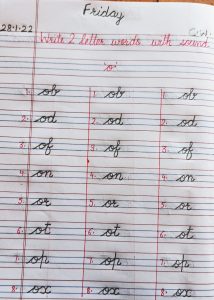 Friday
28-1-22 C.W.
Write 2 letter words with sound
'o'
1. ob 1. ob 1. ob
2. od 2. od 2. od
3. of 3. of 3. of
4. on 4. on 4. on
5. or 5. or 5. or
6. ot 6. ot 6. ot
7. op 7. op 7. op
8. ox 8. ox 8. ox